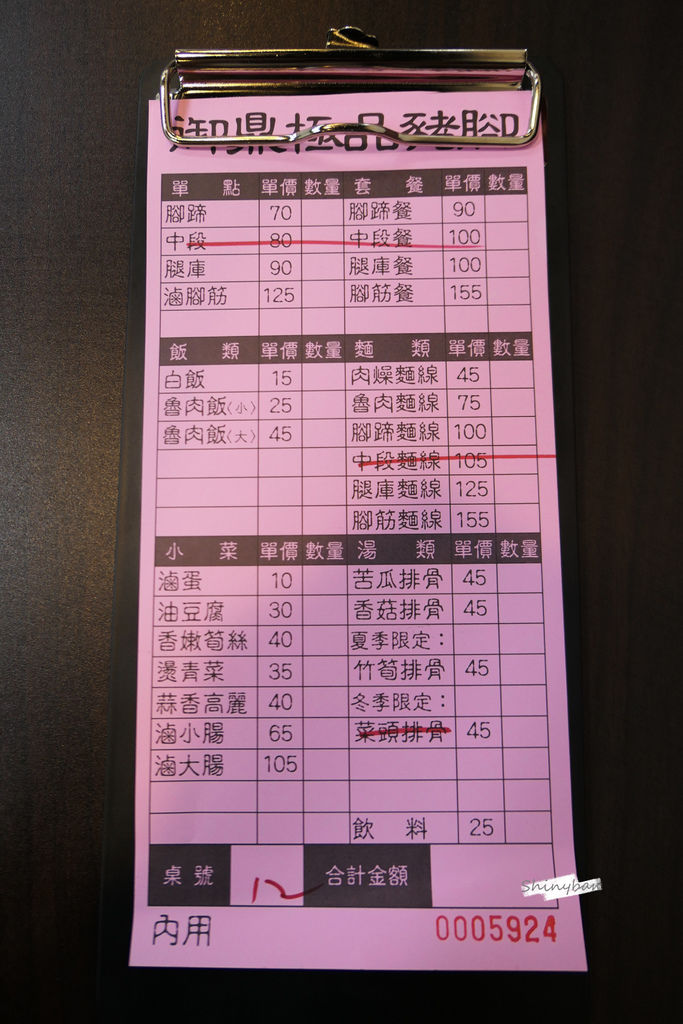 御鼎極品豬腳
單 點 單價 數量 套 餐 單價 數量
腳蹄 70 腳蹄餐 90
中段 80 中段餐 100
腿庫 90 腿庫餐 100
滷腳筋 125 腳筋餐 155
飯 類 單價 數量 麵 類 單價 數量
白飯 15 肉燥麵線 45
魯肉飯(小) 25 魯肉麵線 75
魯肉飯(大) 45 腳蹄麵線 100
中段麵線 105
腿庫麵線 125
腳筋麵線 155
小 菜 單價 數量 湯 類 單價 數量
滷蛋 10 苦瓜排骨 45
油豆腐 30 香菇排骨 45
香嫩筍絲 40 夏季限定：
燙青菜 35 竹筍排骨 45
蒜香高麗 40 冬季限定：
滷小腸 65 菜頭排骨 45
滷大腸 105
飲 料 25
桌號 12 合計金額
Shinyban
內用 0005924